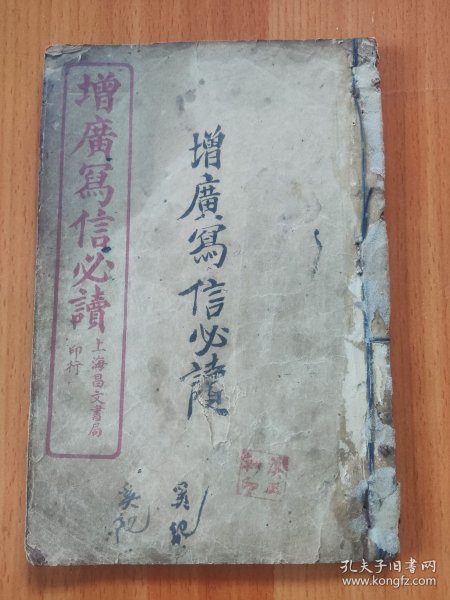 增廣寫信必讀
上海昌文書局
印行
增廣寫信必讀
孔夫子旧书网
www.kongfz.com